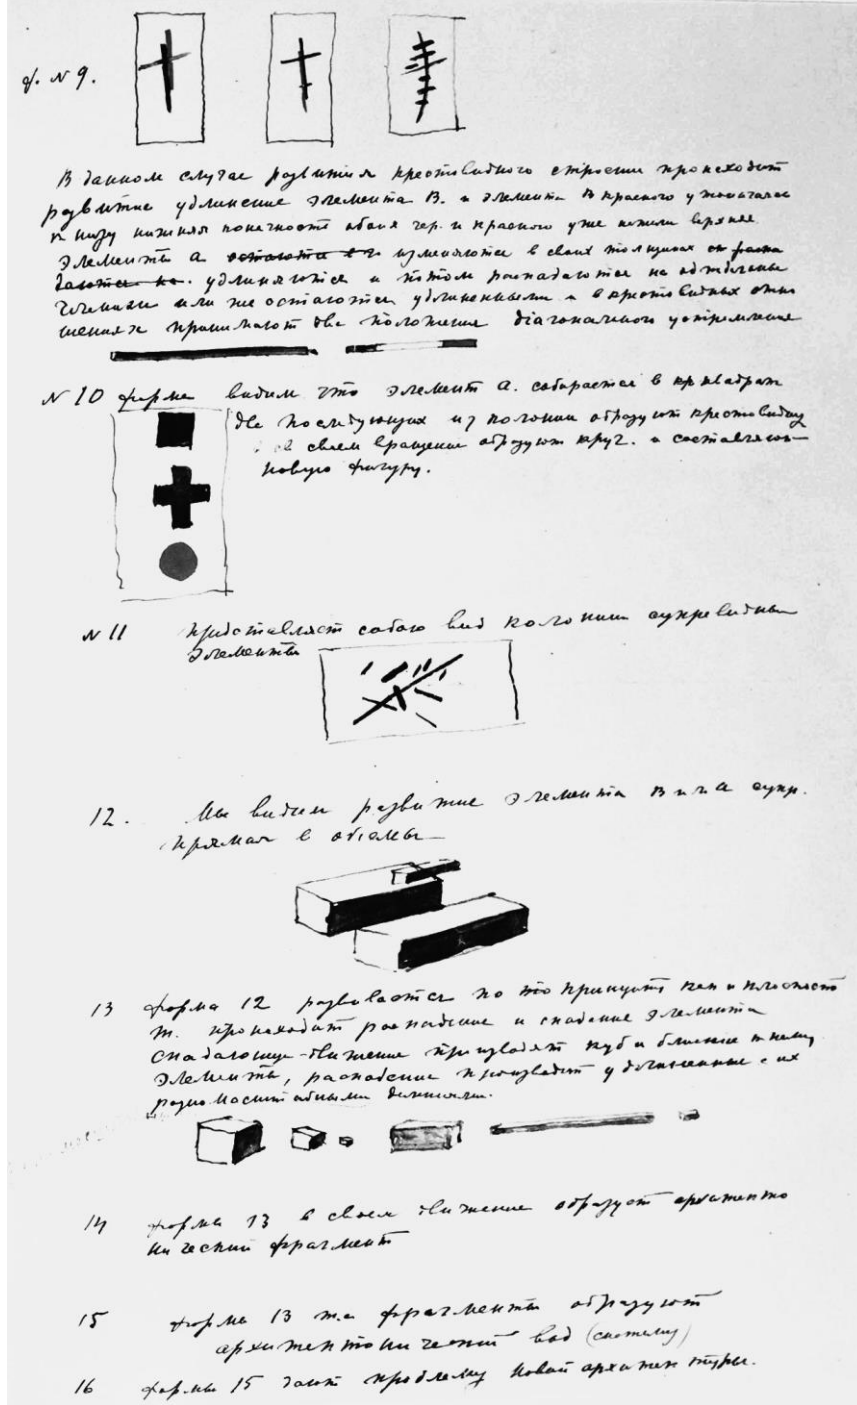 ф. N 9.
В данном случае развития крестовидного строении происходит
развитие удлинение элемента В. и элемента В красного
к низу нижняя конечность абоия чер. и красного уже нежели верхнее
Элементы а остаются изменяются в своих толщинах
даются на. удлиняются и потом распадаются на отдельные
или же остаются удлиненными и в крестовидных отно
шениях принимают две положения діагонального устремления
N 10 форма видим что элемент а. собирается в кр квадрат
две последующих из колонии образуют крестовидну
в своем вращение образуют круг. и составляют
новую фигуру.
N 11 представляет собою вид колонии супревидны
элементы
12. Мы видим развитие элемента В и а супр.
прямая в обемы
13 форма 12 развивается по то принципу как и плоскост
т. происходит распадение и спадение элемента
спадающие движение производят куб и близкие к нему
элементы, распадение производит удлиненные с их
разномасштабными
14 форма 13 в своем движение образует архитекто
нический фрагмент
15 форма 13 фрагменты образуют
архитектонический вад (систему)
16 формы 15 дают проблему новой архитектуры.